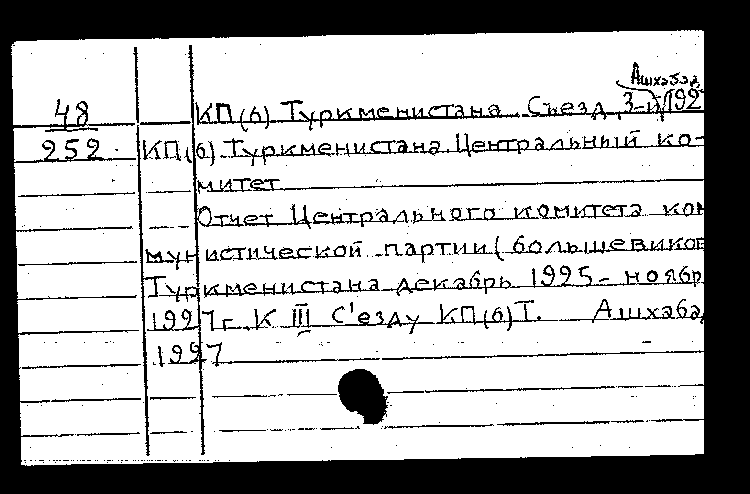 Ашхабад
48 КП(б) Туркменистана. Съезд, 3-й, 192
252. КП(б) Туркменистана. Центральный ко-
митет
Отчет Центрального комитета ком
мунистической партии (большевиков
Туркменистана декабрь 1925 - ноябр
1927 г. К III С'езду КП(б)Т. Ашхабад
1927